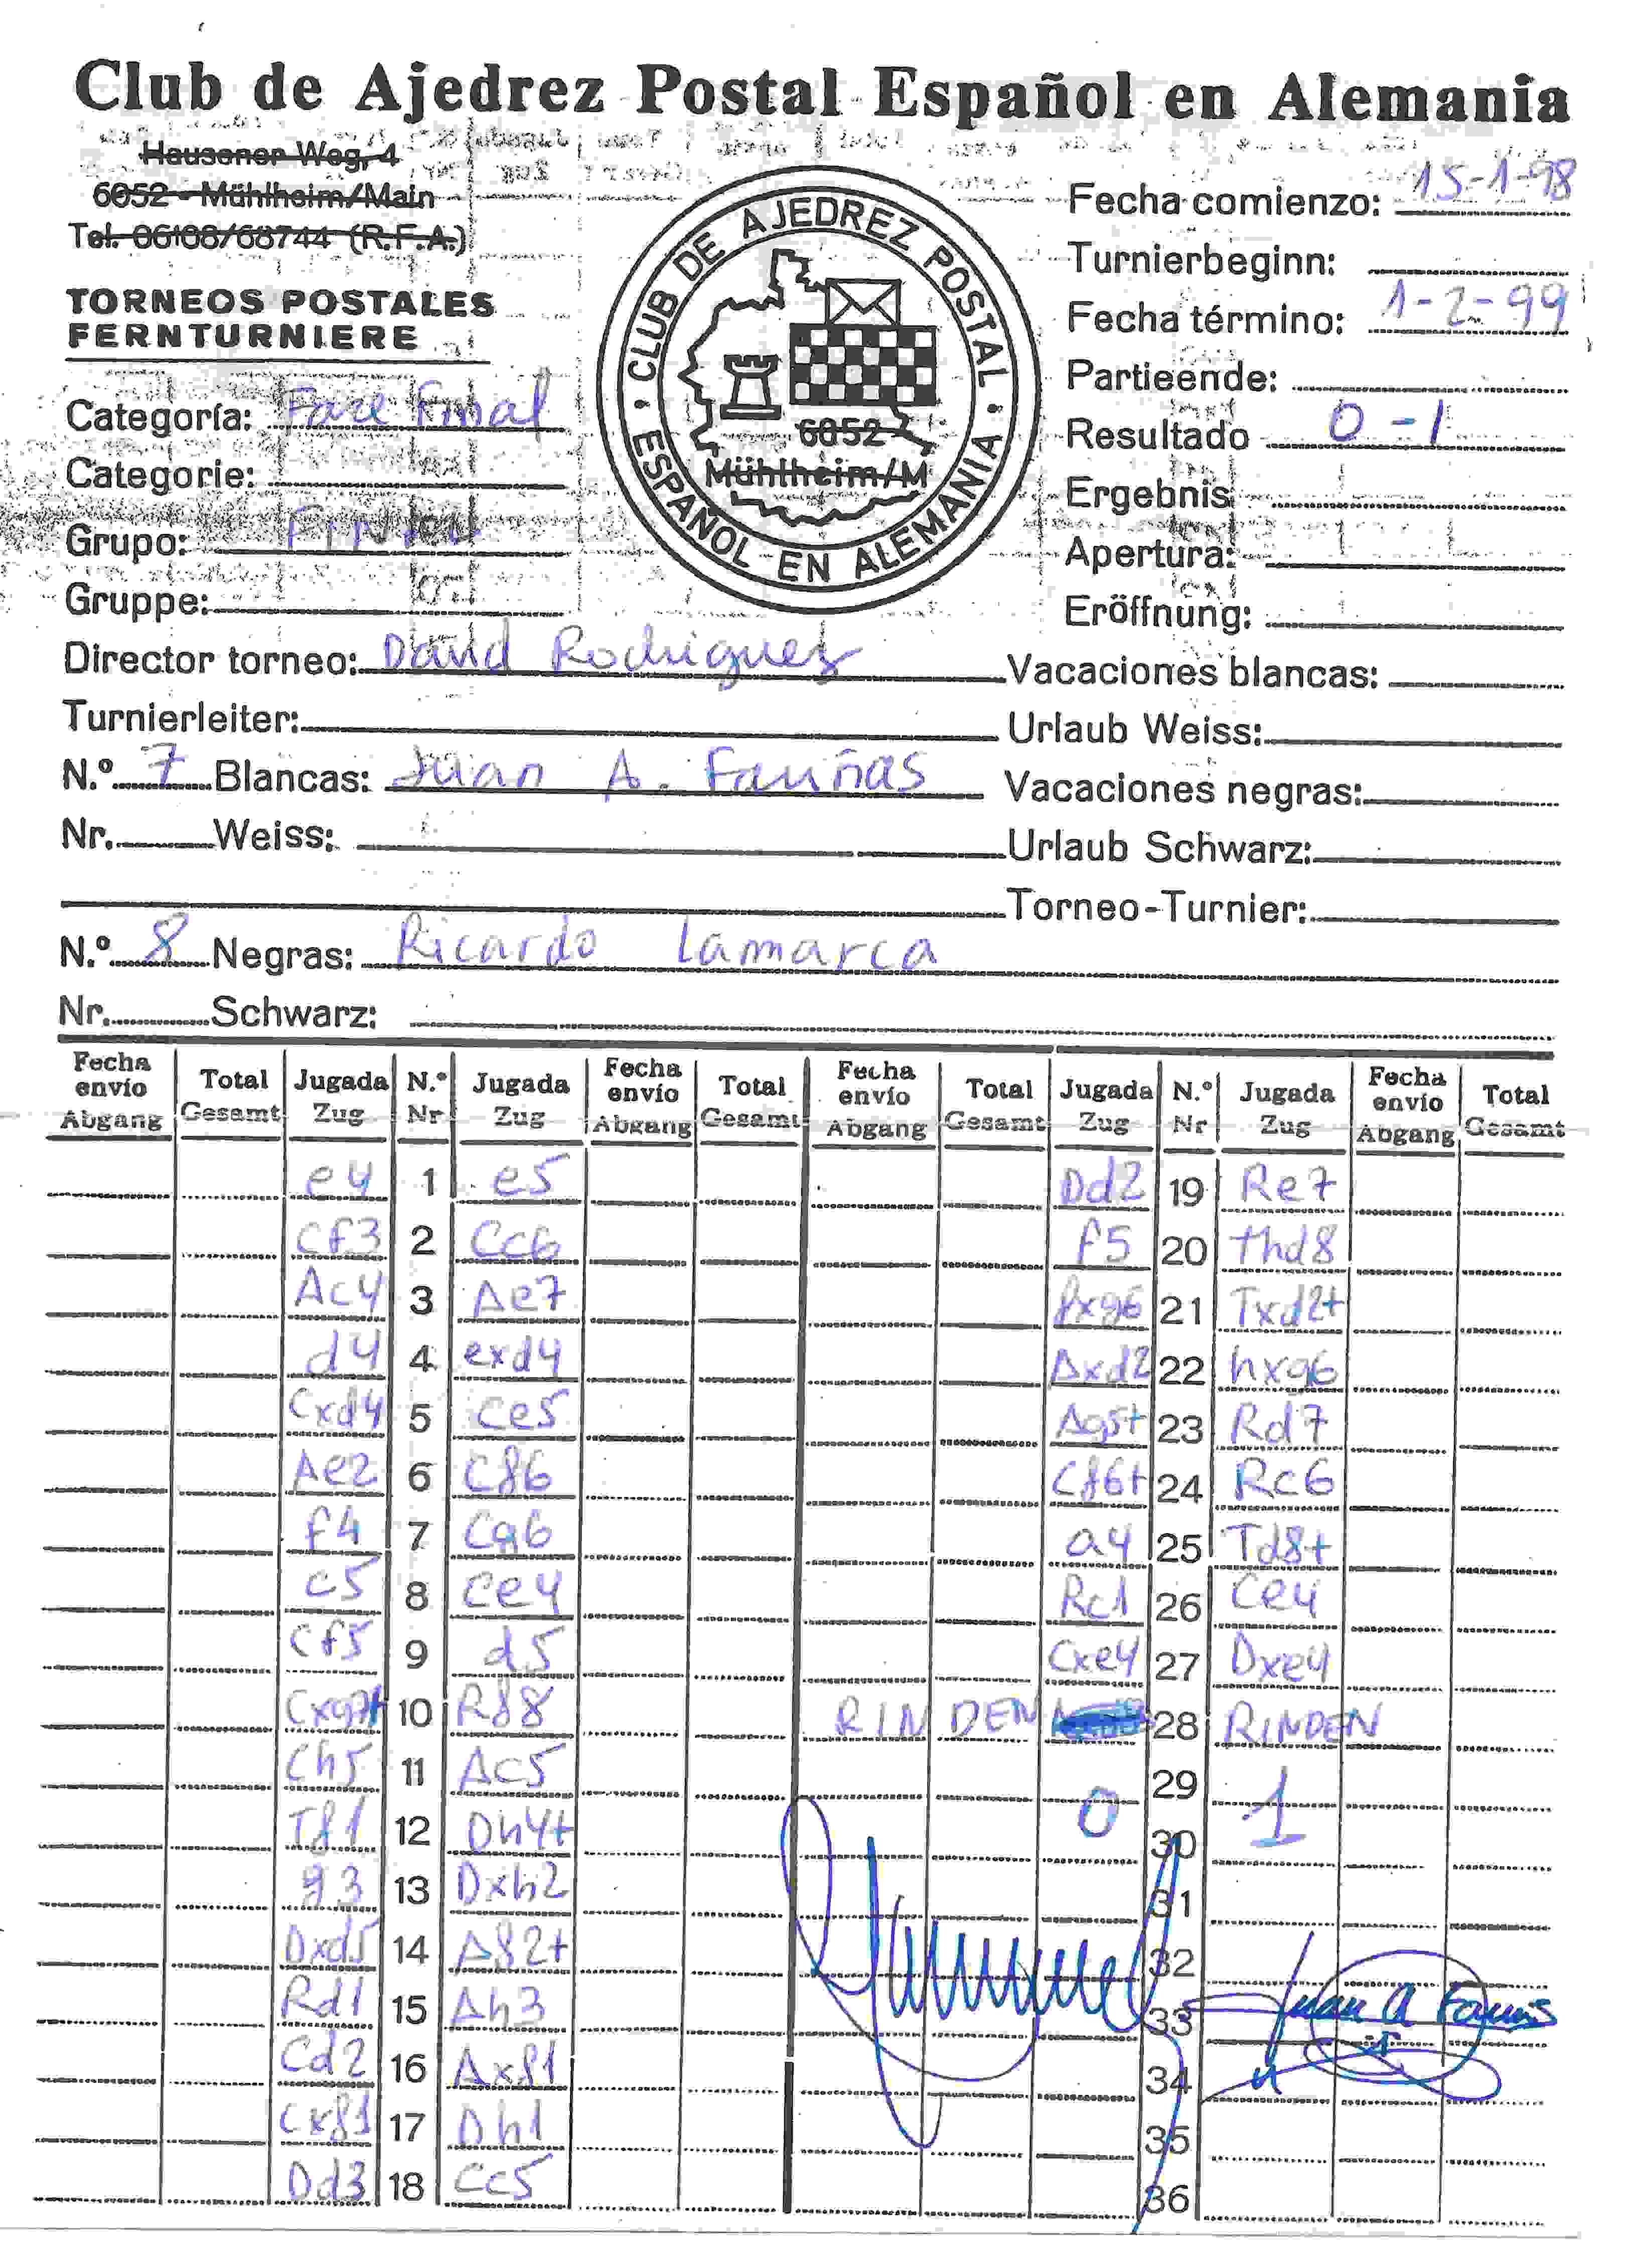 Club de Ajedrez Postal Español en Alemania
Hausener Weg, 4
6052 - Mühlheim/Main
Tel. 06108/68744 (R.F.A.)
TORNEOS POSTALES
FERNTURNIERE
CLUB DE AJEDREZ POSTAL · ESPAÑOL EN ALEMANIA ·
6052
Mühlheim/M
Fecha comienzo: 15-1-98
Turnierbeginn:
Fecha término: 1-2-99
Partieende:
Resultado 0-1
Ergebnis
Apertura:
Eröffnung:
Categoría: Fase Final
Categorie:
Grupo: Final
Gruppe:
Director torneo: David Rodriguez
Vacaciones blancas:
Turnierleiter:
Urlaub Weiss:
N.º 7 Blancas: Juan A. Fauñas
Vacaciones negras:
Nr. Weiss:
Urlaub Schwarz:
Torneo-Turnier:
N.º 8 Negras: Ricardo Lamarca
Nr. Schwarz:
Fecha envío Abgang Total Gesamt Jugada Zug N.º Nr Jugada Zug Fecha envío Abgang Total Gesamt Fecha envío Abgang Total Gesamt Jugada Zug N.º Nr Jugada Zug Fecha envío Abgang Total Gesamt
e4 1 e5 Dd2 19 Re7
Cf3 2 Cc6 f5 20 thd8
Ac4 3 Ae7 fxg6 21 Txd2+
d4 4 exd4 Axd2 22 hxg6
Cxd4 5 Ce5 Ag5+ 23 Rd7
Ae2 6 Cf6 Cf6+ 24 Rc6
f4 7 Cg6 a4 25 Td8+
c5 8 Ce4 Rc1 26 Ce4
Cf5 9 d5 Cxe4 27 Dxe4
Cxg7+ 10 Rf8 RINDEN 28 RINDEN
Ch5 11 Ac5 0 29 1
Tf1 12 Dh4+ 30
g3 13 Dxh2 31
Dxd5 14 Af2+ 32
Rd1 15 Ah3 33 Juan A Fauñas
Cd2 16 Axf1 34
Cxf1 17 Dh1 35
Dd3 18 Cc5 36